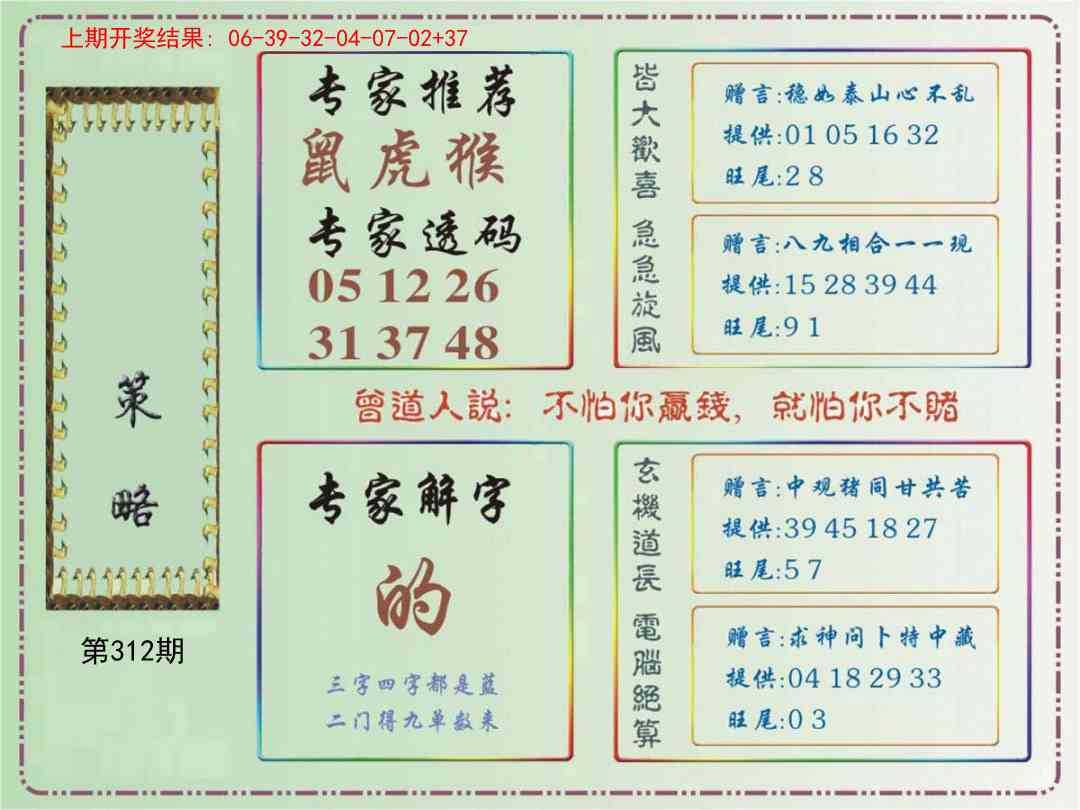 上期开奖结果: 06-39-32-04-07-02+37
策略
第312期
专家推荐
鼠虎猴
专家透码
05 12 26
31 37 48
皆大歡喜
赠言:稳如泰山心不乱
提供:01 05 16 32
旺尾:2 8
急急旋風
赠言:八九相合一一现
提供:15 28 39 44
旺尾:9 1
曾道人説: 不怕你贏錢, 就怕你不賭
专家解字
的
三字四字都是蓝
二门得九单数来
玄機道長
赠言:中观猪同甘共苦
提供:39 45 18 27
旺尾:5 7
電腦絕算
赠言:求神问卜特中藏
提供:04 18 29 33
旺尾:0 3